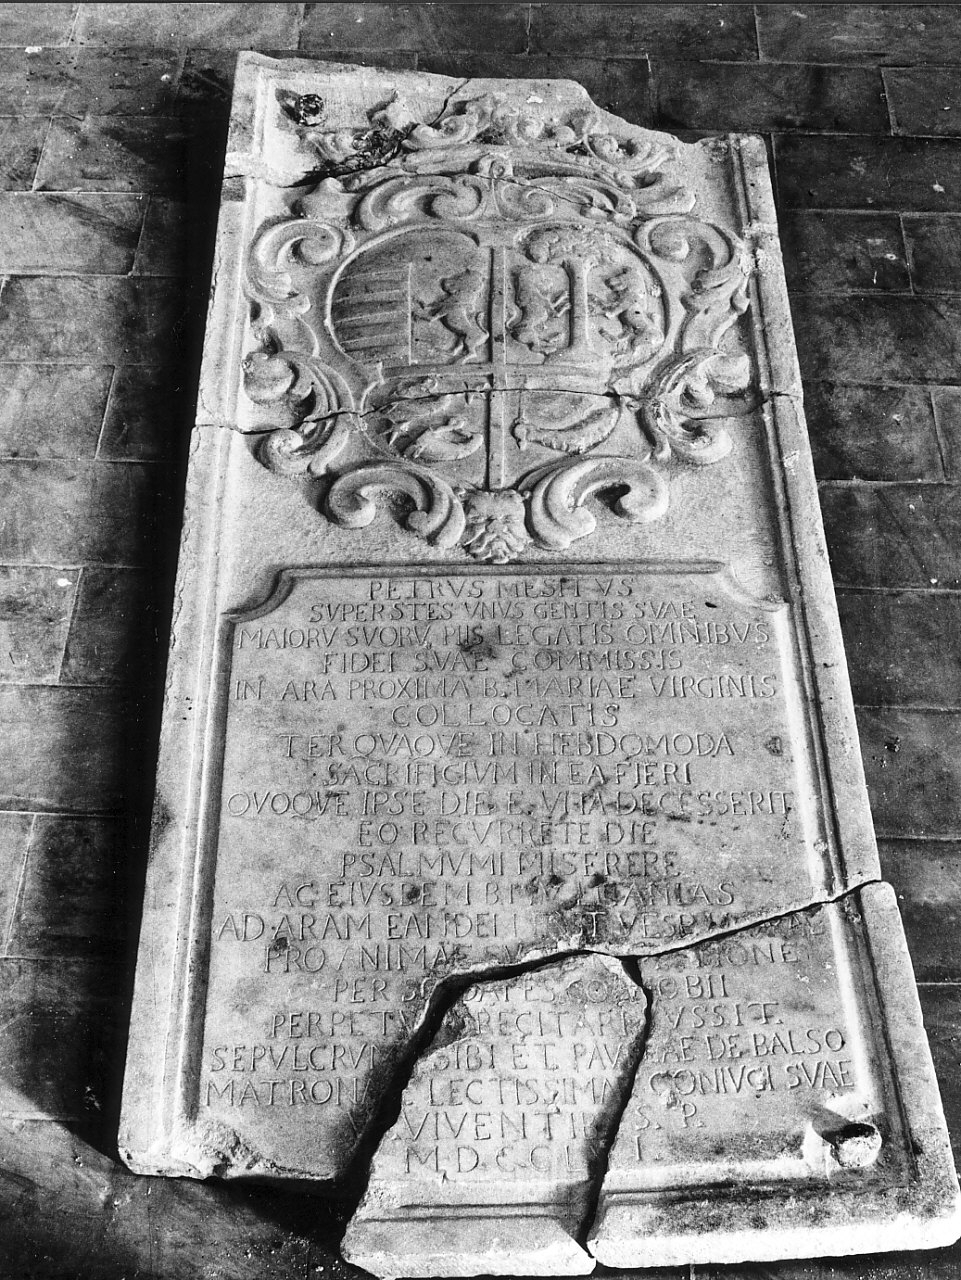 PETRVS MESTVS
SVPERSTES VNVS GENTIS SVAE
MAIORV SVORV HIS LEGATIS OMNIBVS
FIDEI SVAE COMMISSIS
IN ARA PROXIMA B. MARIAE VIRGINIS
COLLOCATIS
TERQVAQVE IN HEBDOMODA
SACRIFIGIVM IN EA FJERI
QVOQVE IPSE DIE E VITA DECESSERIT
EO RECVRRETE DIE
PSALMVM MISERERE
AC EIVSDEM B.
AD ARAM EANDE
PRO ANIMAE IONE
PER
PERPETV RECITARI IVSSIT
SEPVLCRVM SIBI ET PAV AE DE BALSO
MATRONA LECTISSIMA CONIVGI SVAE
VIVENTI S. P.
M D C C L I